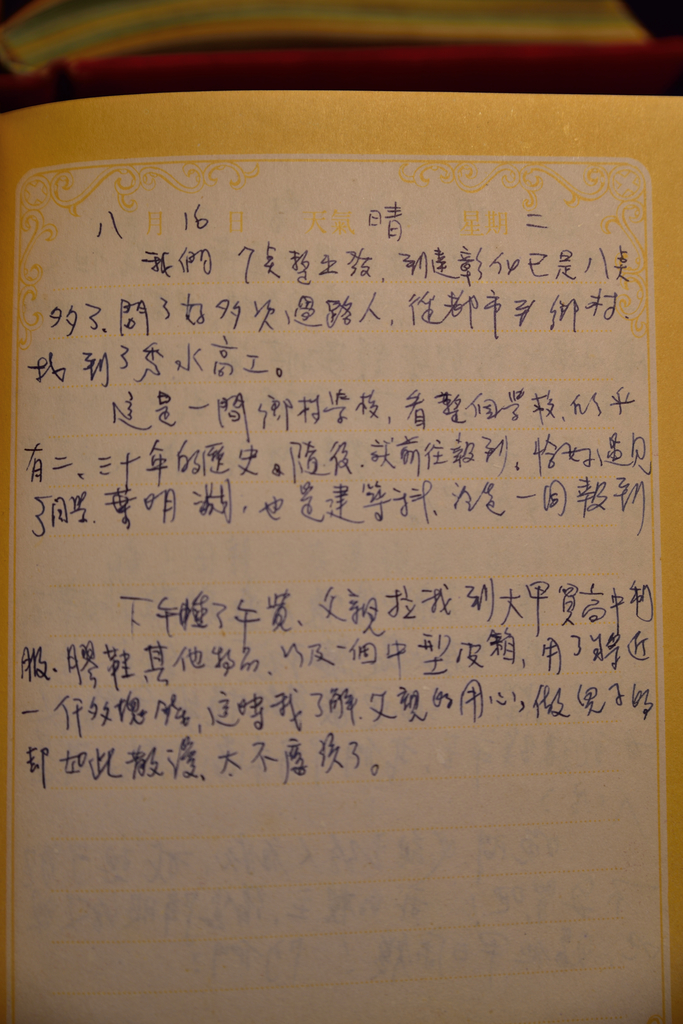 八月16日 天氣 晴 星期二
我們7点整出發,到達彰化已是八点
多了、問了好多次過路人,從都市到鄉村、
找到了秀水高工。
這是一間鄉村學校,看整個學校,似乎
有二、三十年的歷史。隨後、就前往報到。恰好遇見
了同學葉明,也是建築科、於是一同報到
下午睡了午覺、父親拉我到大甲買高中制
服、膠鞋其他物品、以及一個中型皮箱,用了將近
一仟多塊錢,這時我了解父親的用心,做兒子的
却如此散漫、太不應該了。